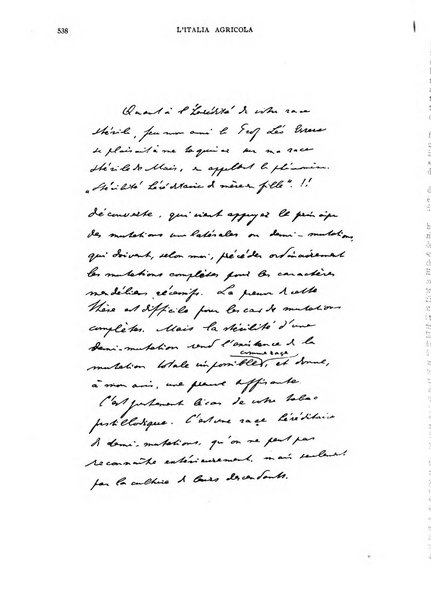 538
L'ITALIA AGRICOLA
Quant à l'hérédité de votre race
stérile, feu mon ami le Prof Léo Errera
se plaisait à me taquiner sur ma race
stérile de Mais, en appelant le phénomène
„Stérilité héréditaire de mère en fille". !!
découverte, qui vient appuyer le principe
des mutations unilatérales ou demi-mutations,
qui doivent, selon moi, précéder ordinairement
les mutations complètes pour les caractères
mendéliens récessifs. La preuve de cette
thèse est difficile pour les cas de mutations
complètes. Mais la stérilité d'une
demi-mutation rend l'existence de la
comme race
mutation totale impossible, et donne,
à mon avis, une preuve suffisante
C'est justement le cas de votre tabac
pistillodique. C'est une race héréditaire
de demi-mutations, qu'on ne peut pas
reconnaître extérieurement, mais seulement
par la culture de leurs descendants.